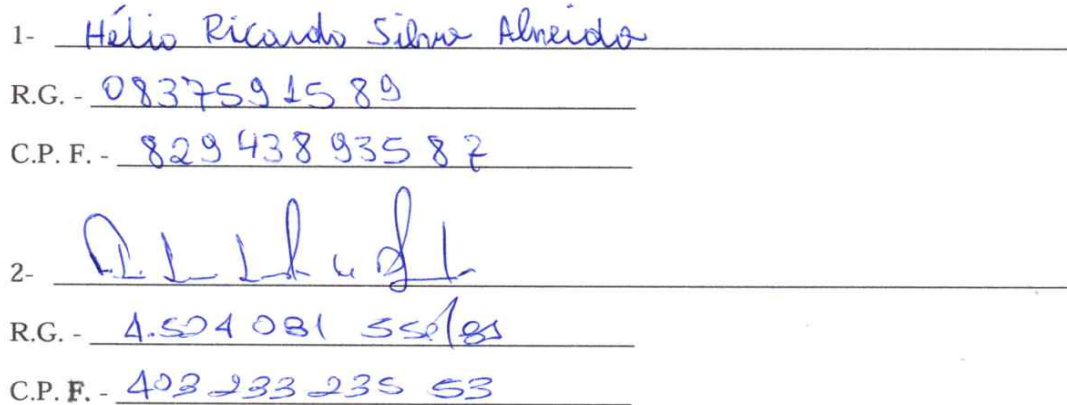 1- Hélio Ricardo Silva Almeida
R.G. - 0837591589
C.P. F. - 829 438 935 87
2-
R.G. - 4.504 081
C.P.F. - 403 233 235 53